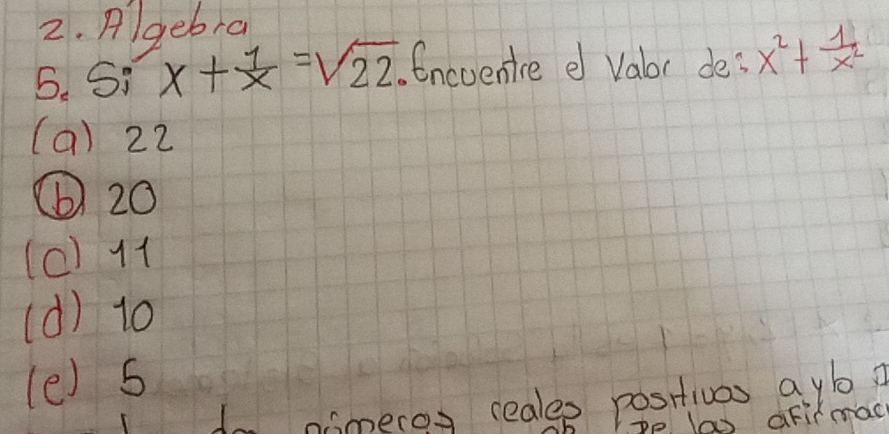 2. Algebra
5. Si x + 1/x = √22. Encuentre el Valor de: x² + 1/x²
(a) 22
(b) 20
(c) 11
(d) 10
(e) 5
números reales positivos a y b
De las afirmac